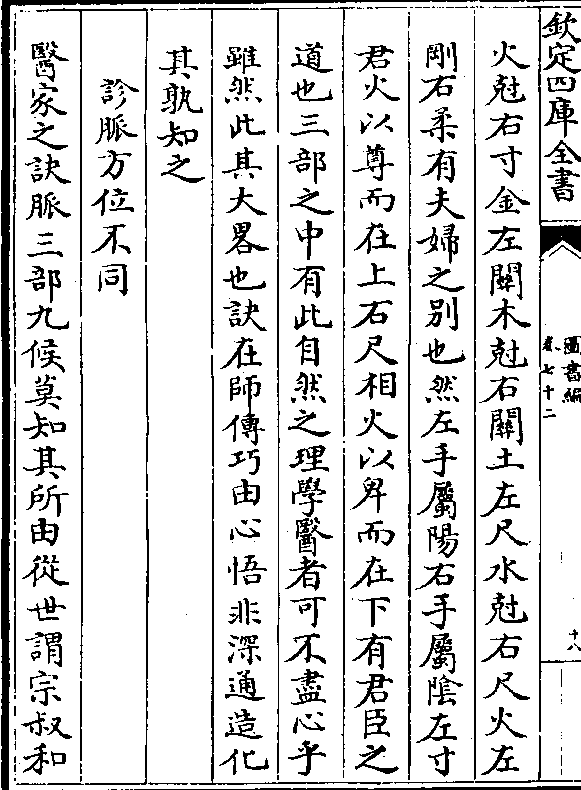 欽定四庫全書
圖書編
卷七十二
十八
火尅右寸金左關木尅右關土左尺水尅右尺火左
剛右柔有夫婦之別也然左手屬陽右手屬陰左寸
君火以尊而在上右尺相火以卑而在下有君臣之
道也三部之中有此自然之理學醫者可不盡心乎
雖然此其大畧也訣在師傳巧由心悟非深通造化
其孰知之
診脈方位不同
醫家之訣脈三部九候莫知其所由從世謂宗叔和